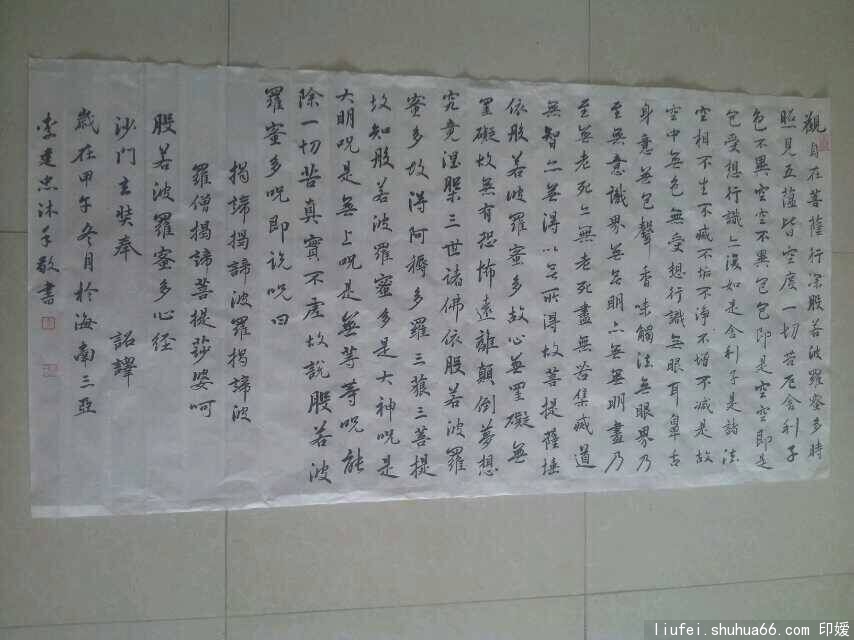 觀自在菩薩行深般若波羅蜜多時
照見五蕴皆空度一切苦厄舍利子
色不異空空不異色色即是空空即是
色受想行識亦復如是舍利子是諸法
空相不生不滅不垢不净不增不减是故
空中無色無受想行識無眼耳鼻舌
身意無色聲香味觸法無眼界乃
至無意識界無無明亦無無明盡乃
至無老死亦無老死盡無苦集滅道
無智亦無得以無所得故菩提薩埵
依般若波羅蜜多故心無罣礙無
罣礙故無有恐怖遠離顛倒夢想
究竟涅槃三世諸佛依般若波羅
蜜多故得阿耨多羅三藐三菩提
故知般若波羅蜜多是大神呪是
大明呪是無上呪是無等等呪能
除一切苦真實不虚故說般若波
羅蜜多呪即说呪曰
揭諦揭諦波羅揭諦波
羅僧揭諦菩提莎婆呵
般若波羅蜜多心经
沙门玄奘奉 詔譯
歲在甲午冬月於海南三亞
李建忠沐手敬書
liufei.shuhua66.com 印媛